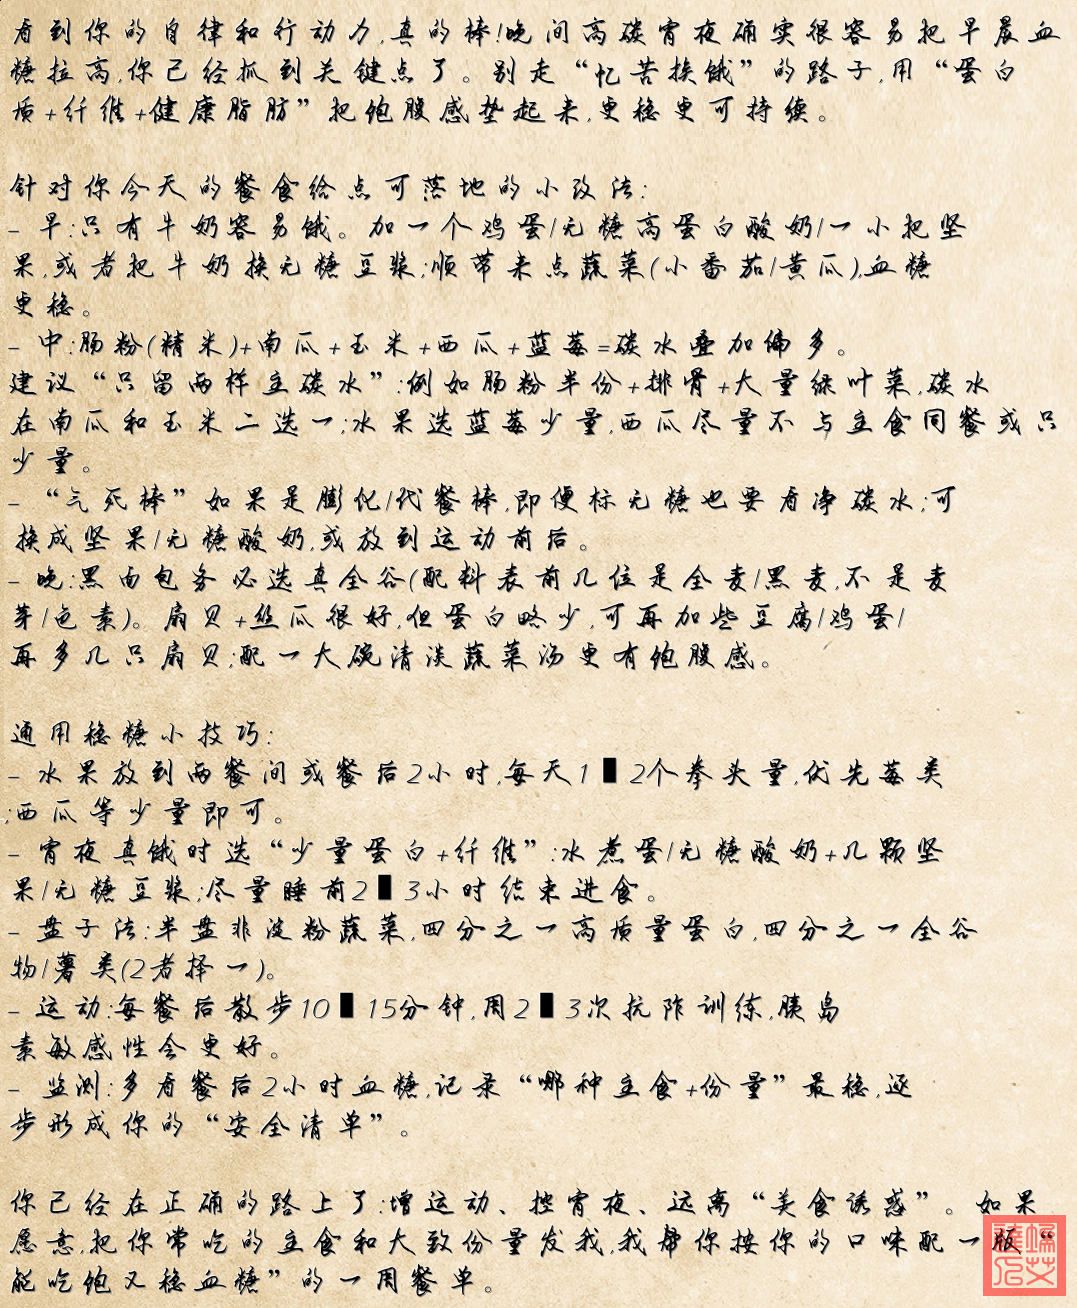 看到你的自律和行动力,真的棒!晚间高碳宵夜确实很容易把早晨血
糖拉高,你已经抓到关键点了。别走“忆苦挨饿”的路子,用“蛋白
质+纤维+健康脂肪”把饱腹感垫起来,更稳更可持续。
针对你今天的餐食给点可落地的小改法:
- 早:只有牛奶容易饿。加一个鸡蛋/无糖高蛋白酸奶/一小把坚
果,或者把牛奶换无糖豆浆;顺带来点蔬菜(小番茄/黄瓜),血糖
更稳。
- 中:肠粉(精米)+南瓜+玉米+西瓜+蓝莓=碳水叠加偏多。
建议“只留两样主碳水”:例如肠粉半份+排骨+大量绿叶菜,碳水
在南瓜和玉米二选一;水果选蓝莓少量,西瓜尽量不与主食同餐或只
少量。
- “气死棒”如果是膨化/代餐棒,即便标无糖也要看净碳水;可
换成坚果/无糖酸奶,或放到运动前后。
- 晚:黑面包务必选真全谷(配料表前几位是全麦/黑麦,不是麦
芽/色素)。扇贝+丝瓜很好,但蛋白略少,可再加些豆腐/鸡蛋/
再多几只扇贝;配一大碗清淡蔬菜汤更有饱腹感。
通用稳糖小技巧:
- 水果放到两餐间或餐后2小时,每天1▮2个拳头量,优先莓类
;西瓜等少量即可。
- 宵夜真饿时选“少量蛋白+纤维”:水煮蛋/无糖酸奶+几颗坚
果/无糖豆浆;尽量睡前2▮3小时结束进食。
- 盘子法:半盘非淀粉蔬菜,四分之一高质量蛋白,四分之一全谷
物/薯类(2者择一)。
- 运动:每餐后散步10▮15分钟,周2▮3次抗阻训练,胰岛
素敏感性会更好。
- 监测:多看餐后2小时血糖,记录“哪种主食+份量”最稳,逐
步形成你的“安全清单”。
你已经在正确的路上了:增运动、控宵夜、远离“美食诱惑”。如果
愿意,把你常吃的主食和大致份量发我,我帮你按你的口味配一版“
能吃饱又稳血糖”的一周餐单。